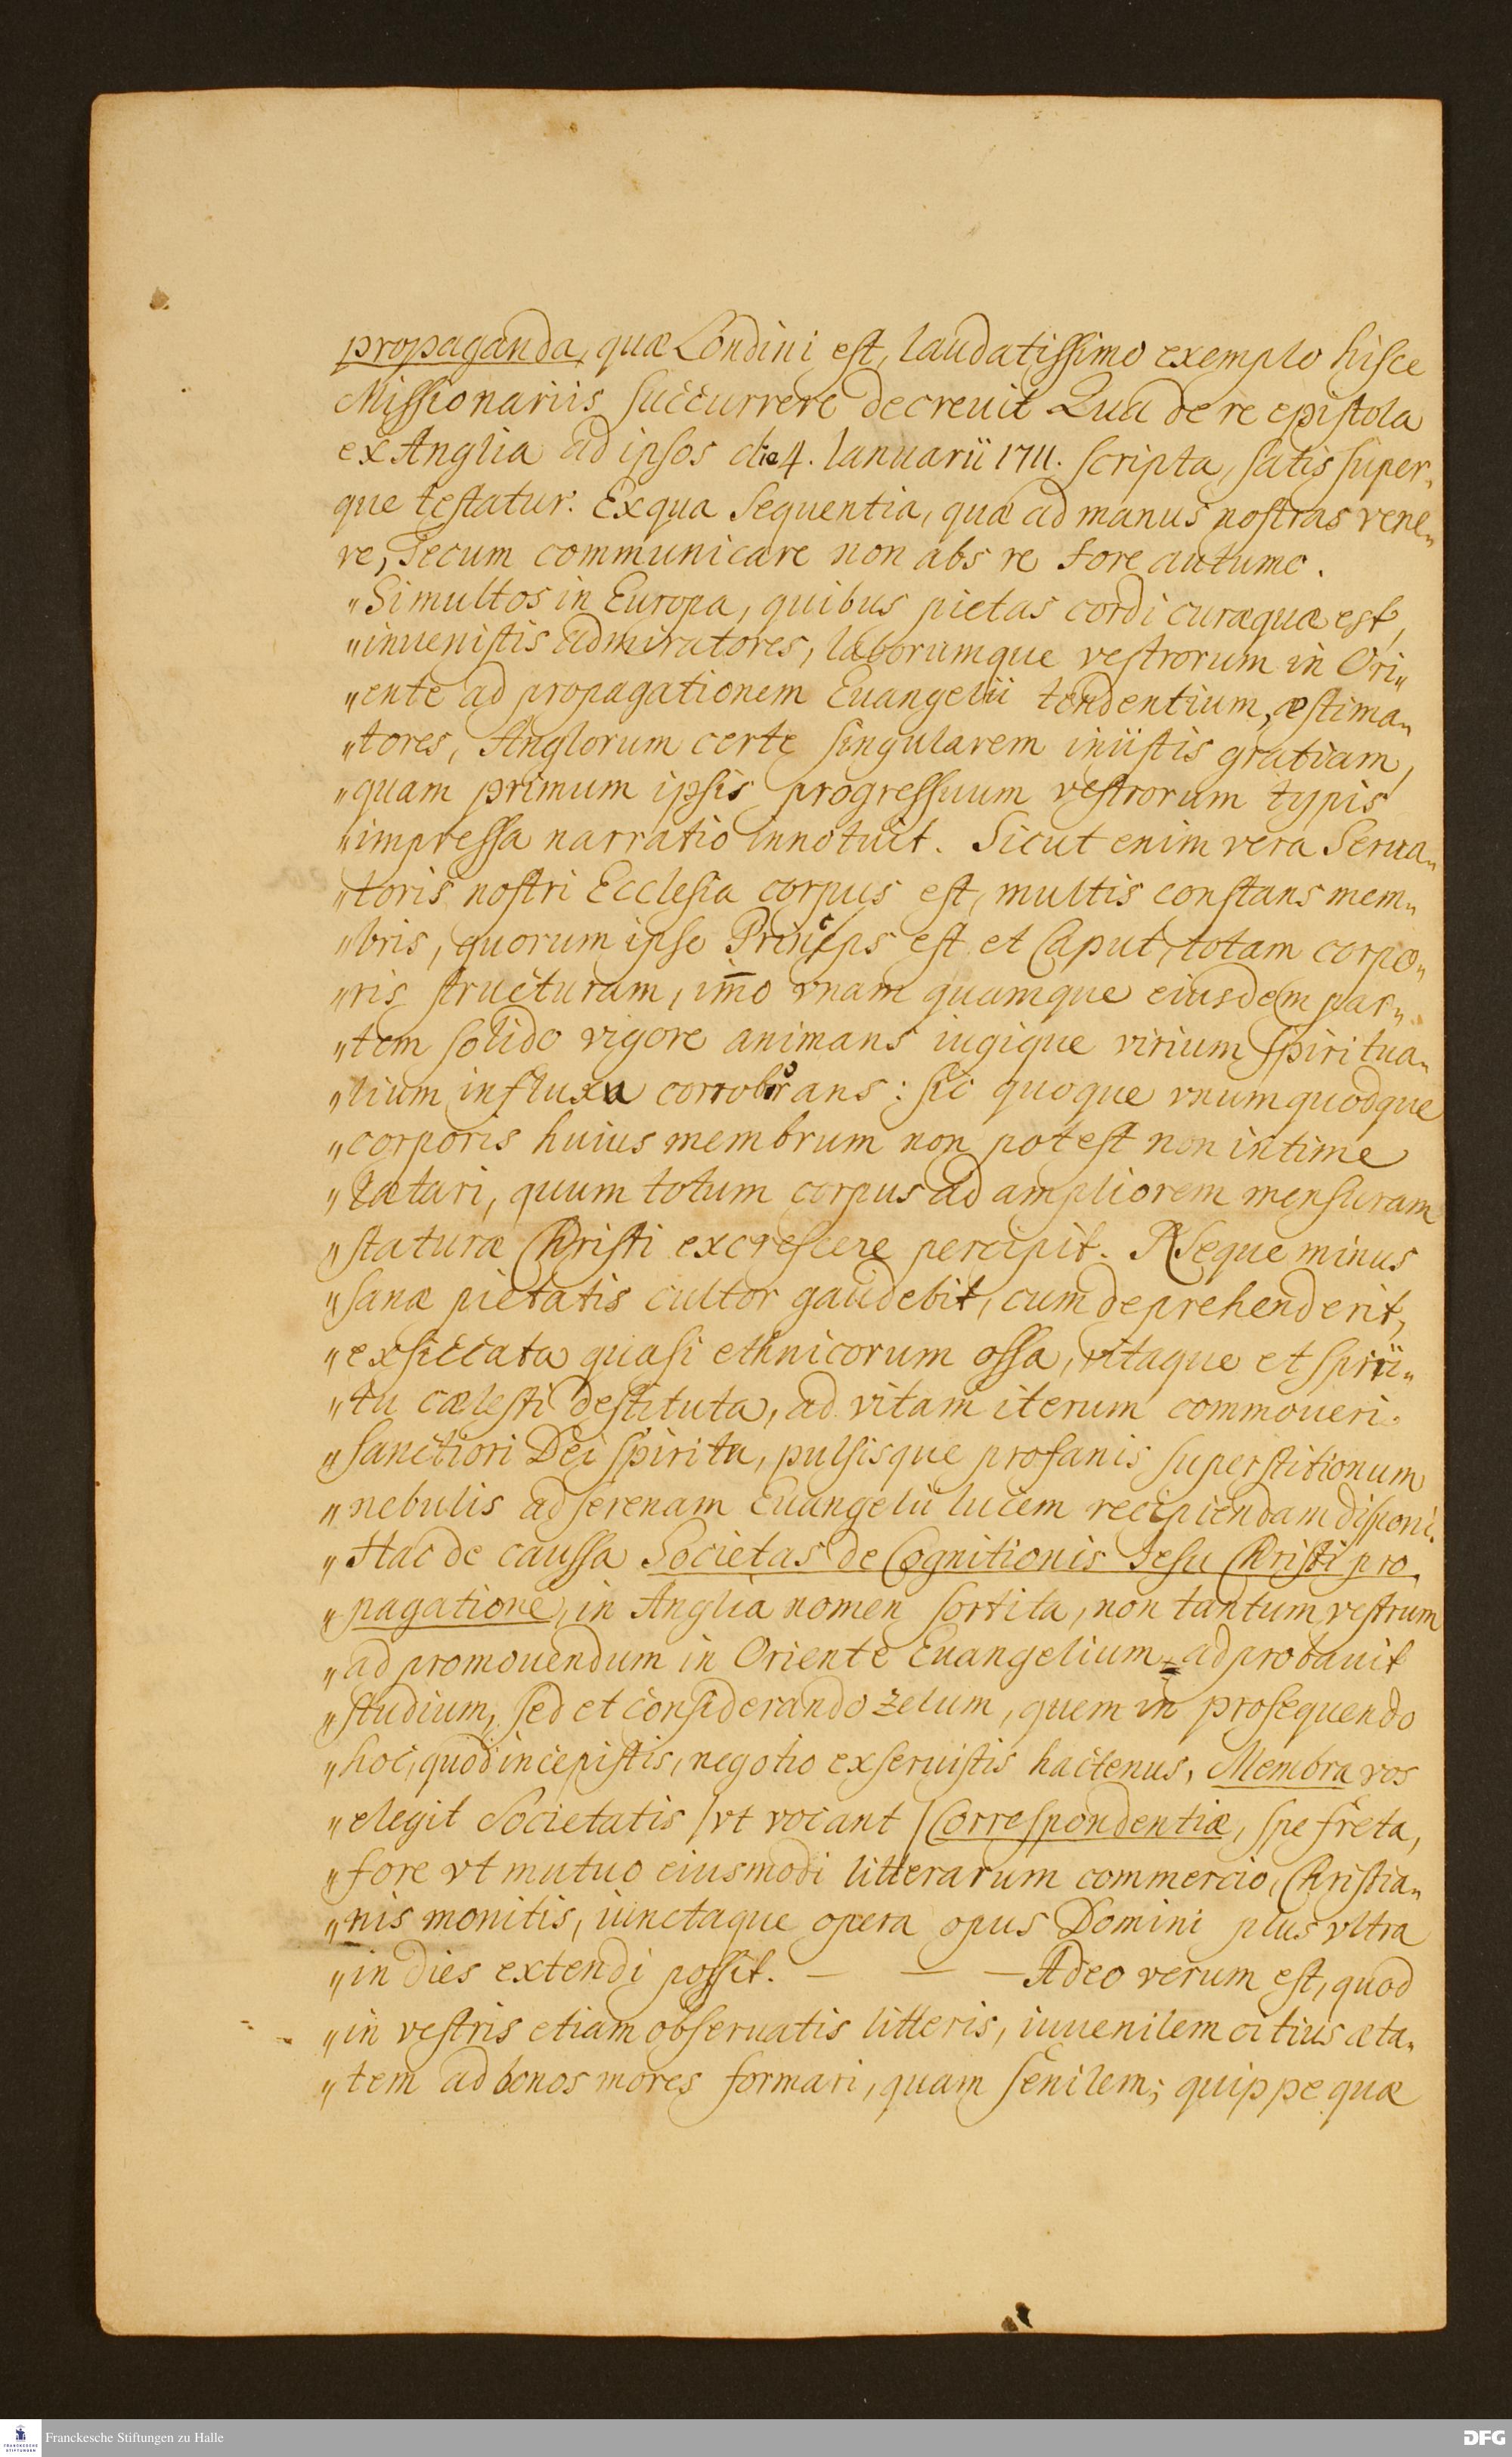 propaganda, quæ Londini est, laudatissimo exemplo hisce
Missionariis succurrere decreuit Qua de re epistola
ex Anglia ad ipsos die 4. Ianuarii 1711. scripta, satis super„
que testatur. Ex qua sequentia, quæ ad manus nostras vene„
re, Tecum communicare non abs re fore autumo.
„Si multos in Europa, quibus pietas cordi curæquæ est,
„inuenistis admiratores, laborumque vestrorum in Ori„
„ente ad propagationem Euangelii tendentium, æstima„
„tores, Anglorum certe singularem iniistis gratiam,
„quam primum ipsis progressuum vestrorum typis
„impressa narratio innotuit. Sicut enim vera Serua„
„toris nostri Ecclesia corpus est, multis constans mem„
„bris, quorum ipse Princeps est et Caput, totam corpo„
„ris structuram, im̅o vnam quamque eiusdem par„
„tem solido vigore animans iugique virium spiritua„
„lium influxu corroborans: sic quoque vnumquodque
„corporis huius membrum non potest non intime
„lætari, quum totum corpus ad ampliorem mensuram
„staturæ Christi excrescere percipit. Neque minus
„sanæ pietatis cultor gaudebit, cum deprehenderit,
„exsiccata quasi ethnicorum ossa, vitaque et spiri„
„tu cælesti destituta, ad vitam iterum commoueri.
„sanctiori Dei spiritu, pulsisque profanis superstitionum
„nebulis ad serenam Euangelii lucem recipiendam disponi.
„Hac de caussa Societas de Cognitionis Iesu Christi pro„
„pagatione, in Anglia nomen sortita, non tantum vestrum
„ad promouendum in Oriente Euangelium adprobauit
„studium, sed et considerando zelum, quem in prosequendo
„hoc, quod incepistis, negotio exseruistis hactenus, Membra vos
„elegit Societatis /vt vocant/ Correspondentiæ, spe freta,
„fore vt mutuo eiusmodi litterarum commercio, Christia„
„nis monitis, iunctaque opera opus Domini plus vltra
„in dies extendi possit. — — — Adeo verum est, quod
„in vestris etiam obseruatis litteris, iuuenilem citius æta„
„tem ad bonos mores formari, quam senilem; quippe quæ
Franckesche Stiftungen zu Halle
DFG